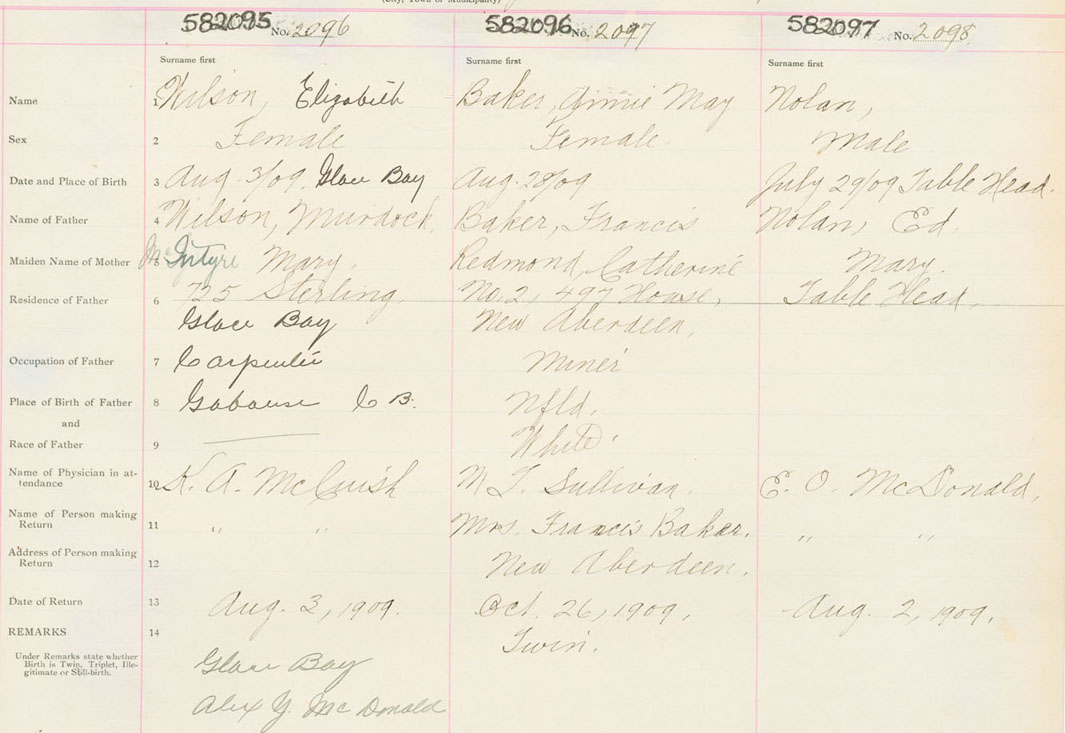 (City, Town or Municipality)
582095 No. 2096 582096 No. 2097 582097 No. 2098
Surname first Surname first Surname first
Name 1 Wilson, Elizabeth Baker, Annie May Nolan,
Sex 2 Female Female. Male
Date and Place of Birth 3 Aug. 3/09. Glace Bay Aug. 28/09 July 29/09 Table Head.
Name of Father 4 Wilson, Murdock. Baker, Francis Nolan, Ed.
Maiden Name of Mother 5 McIntyre Mary. Redmond, Catherine Mary.
Residence of Father 6 725 Sterling. No. 2, 497 House, Table Head.
Glace Bay New Aberdeen,
Occupation of Father 7 Carpenter Miner
Place of Birth of Father 8 Gabouse C B. Nfld.
and
Race of Father 9 White.
Name of Physician in at-
tendance 10 K. A. McCuish M T. Sullivan. E. O. McDonald,
Name of Person making
Return 11 " " Mrs. Francis Baker. " "
Address of Person making
Return 12 New Aberdeen.
Date of Return 13 Aug. 3, 1909. Oct. 26, 1909. Aug. 2, 1909.
REMARKS 14 Twin.
Under Remarks state whether
Birth is Twin, Triplet, Ille-
gitimate or Still-birth.
Glace Bay
Alex Y. McDonald